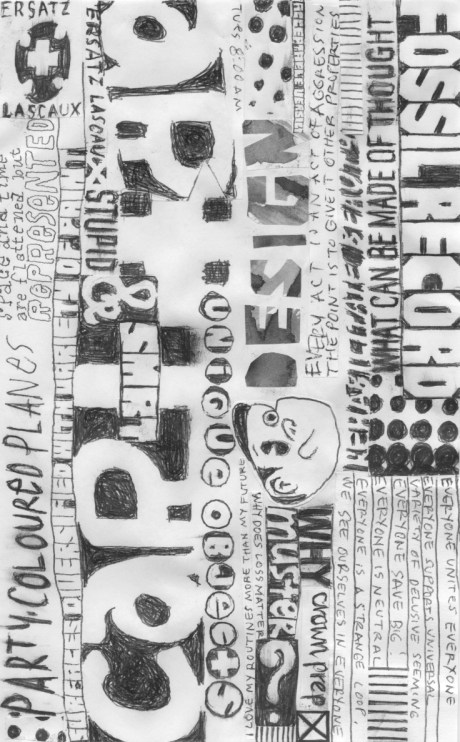 ERSATZ
LASCAUX
Space and time
are flattened but
REPRESENTED
PARTY-COLOURED PLANES
ERSATZ LASCAUX X STUPID & SMART
TUES 8:20 AM
UNIQUE OBJECTS
DESIGN
EVERY ACT IS AN ACT OF AGGRESSION
THE POINT IS TO GIVE IT OTHER PROPERTIES
WHAT CAN BE MADE OF THOUGHT
FOSSIL RECORD
I LOVE MY ROUTINES MORE THAN MY FUTURE
WHY DOES LOSS MATTER
WHY
muster
?
crown prep
WE SEE OURSELVES IN EVERYONE
EVERYONE IS A STRANGE LOOP.
EVERYONE IS NEUTRAL
EVERYONE SAVE BIG!
VARIETY OF DELUSIVE SEEMING
EVERYONE SUPPORTS UNIVERSAL
EVERYONE UNITES EVERYONE